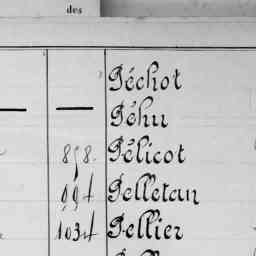 des
Péchot
— Péhu
858. Pélicot
994 Pelletan
1034 Pellier